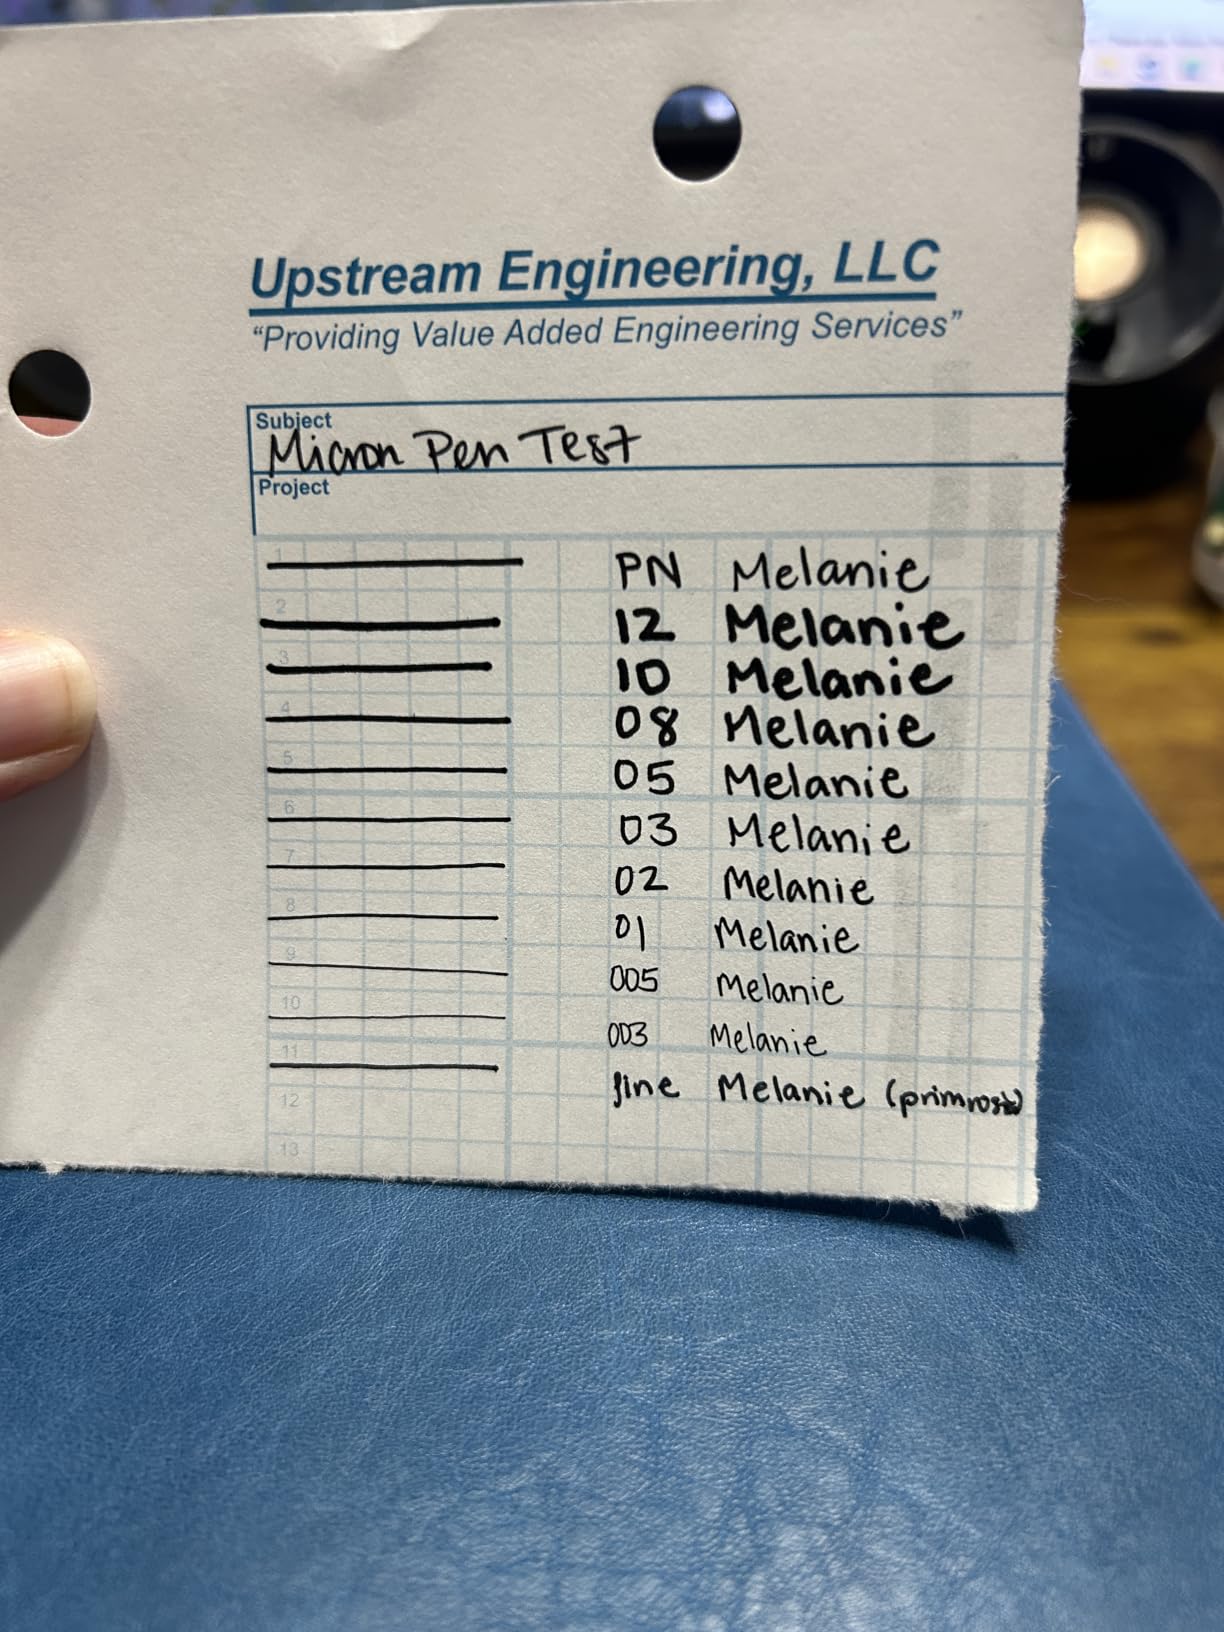 Upstream Engineering, LLC
“Providing Value Added Engineering Services”
Subject
Micron Pen Test
Project
1 PN Melanie
2 12 Melanie
3 10 Melanie
4 08 Melanie
5 05 Melanie
6 03 Melanie
7 02 Melanie
8 01 Melanie
9 005 Melanie
10 003 Melanie
11 fine Melanie
12
13